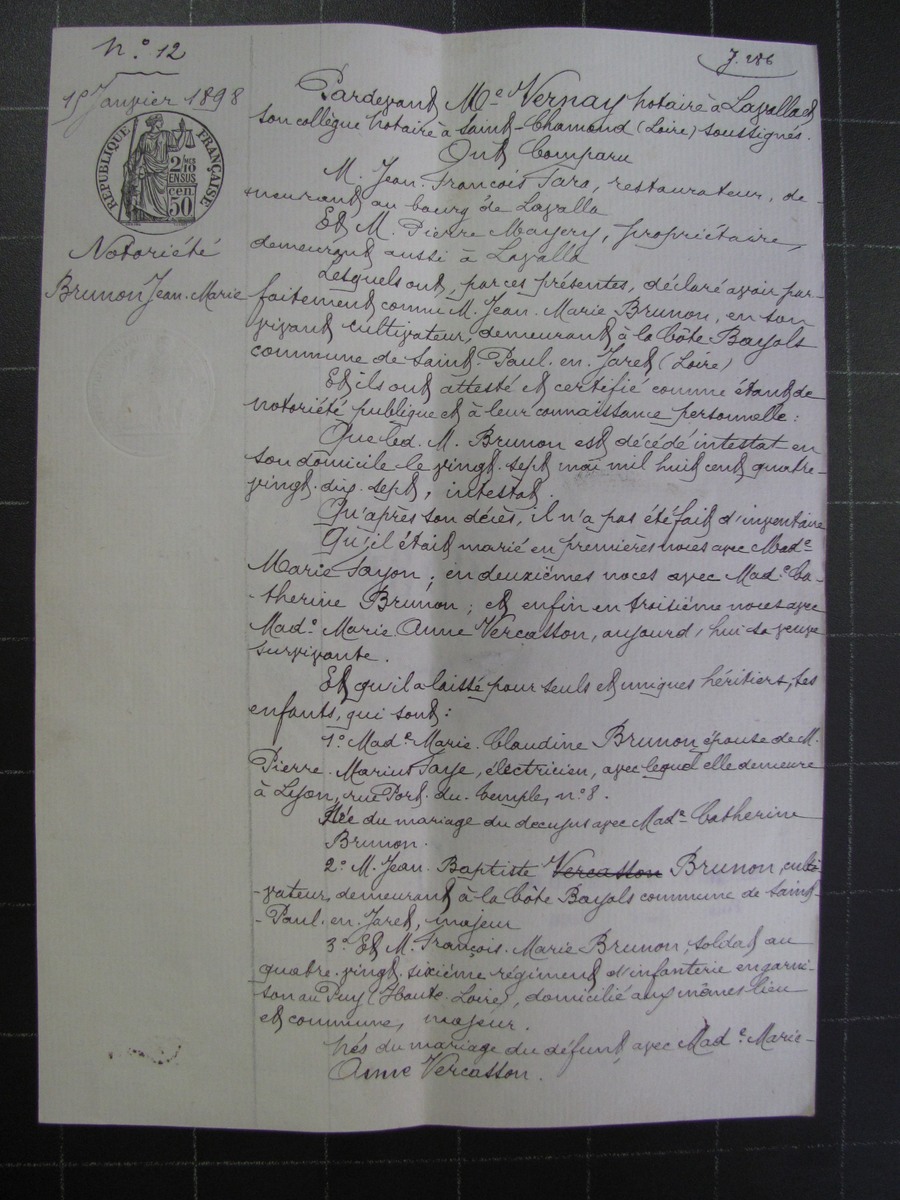 N.o 12
J. 286
15 Janvier 1898
RÉPUBLIQUE FRANÇAISE
2/10
EN SUS
cen.
50
Notoriété
Brunon Jean-Marie
Pardevant Me Vernay notaire à Lavalla et
son collègue notaire à Saint-Chamond (Loire) soussignés.
Ont Comparu
M. Jean-François Tara, restaurateur, de-
meurant au bourg de Lavalla
Et M. Pierre Mayery, propriétaire,
demeurant aussi à Lavalla
Lesquels ont, par ces présentes, déclaré avoir par-
faitement connu M. Jean-Marie Brunon, en son
vivant cultivateur, demeurant à la Côte Bayols
commune de Saint-Paul-en-Jaret (Loire)
Et ils ont attesté et certifié comme étant de
notoriété publique et à leur connaissance personnelle:
Que led. M. Brunon est décédé intestat en
son domicile le vingt-sept mai mil huit cent quatre-
vingt-dix-sept, intestat.
Qu'après son décès, il n'a pas été fait d'inventaire
Qu'il était marié en premières noces avec Made
Marie Sayon; en deuxièmes noces avec Made Ca-
-therine Brunon; et enfin en troisième noces avec
Made Marie Anne Vercasson, aujourd'hui sa veuve
survivante.
Et qu'il a laissé pour seuls et uniques héritiers, ses
enfants, qui sont:
1o Made Marie-Claudine Brunon épouse de M.
Pierre-Marius Faye, électricien, avec lequel elle demeure
à Lyon, rue Port-du-Temple, no 8.
Née du mariage du decujus avec Made Catherine
Brunon.
2o M. Jean-Baptiste Vercasson Brunon, culti-
-vateur, demeurant à la Côte Bayols commune de Saint-
-Paul-en-Jaret, majeur
3o Et M. François-Marie Brunon, soldat au
quatre-vingt-sixième régiment d'infanterie en garni-
son au Puy (Haute-Loire), domicilié aux mêmes lieu
et commune, majeur.
Nés du mariage du défunt avec Made Marie-
Anne Vercasson.